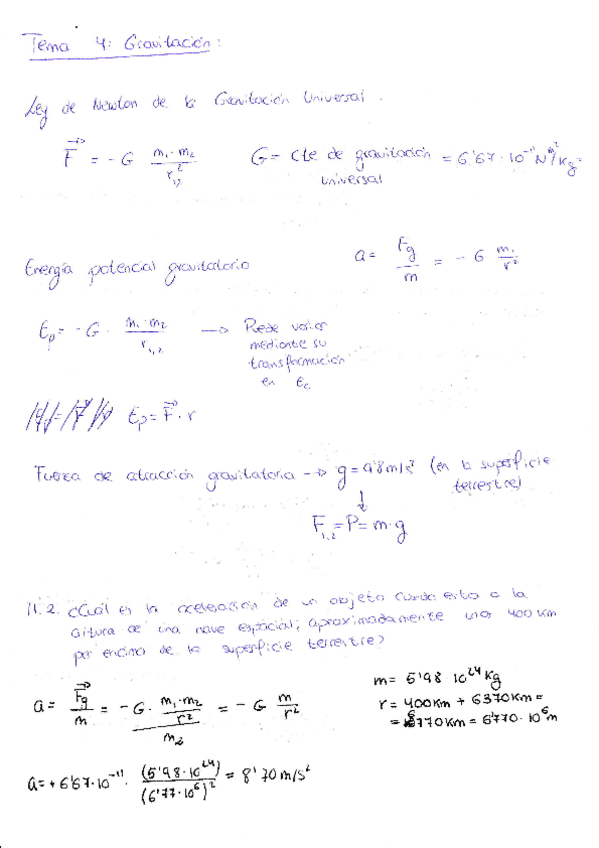 Tema 4: Gravitación:
Ley de Newton de la Gravitación Universal.
F⃗ = -G m₁·m₂ / r₁,₂² G = cte de gravitación universal = 6'67·10⁻¹¹ N m²/kg²
Energía potencial gravitatoria a = Fg / m = -G m₁ / r²
Ep = -G · m₁·m₂ / r₁,₂ → Puede variar
mediante su
transformación
en Ec
Ep = F⃗ · r
Fuerza de atracción gravitatoria → g = 9'8 m/s² (en la superficie
terrestre)
↓
F₁,₂ = P = m·g
11.2. ¿Cuál es la aceleración de un objeto cuando esta a la
altura de una nave espacial; aproximadamente unos 400 km
por encima de la superficie terrestre?
m = 5'98 10²⁴ kg
a = F⃗g / m = -G · m₁·m₂ / r² / m₂ = -G m / r² r = 400 km + 6370 km =
= 6770 km = 6'770 · 10⁶ m
a = + 6'67·10⁻¹¹ · (5'98·10²⁴) / (6'77·10⁶)² = 8'70 m/s²